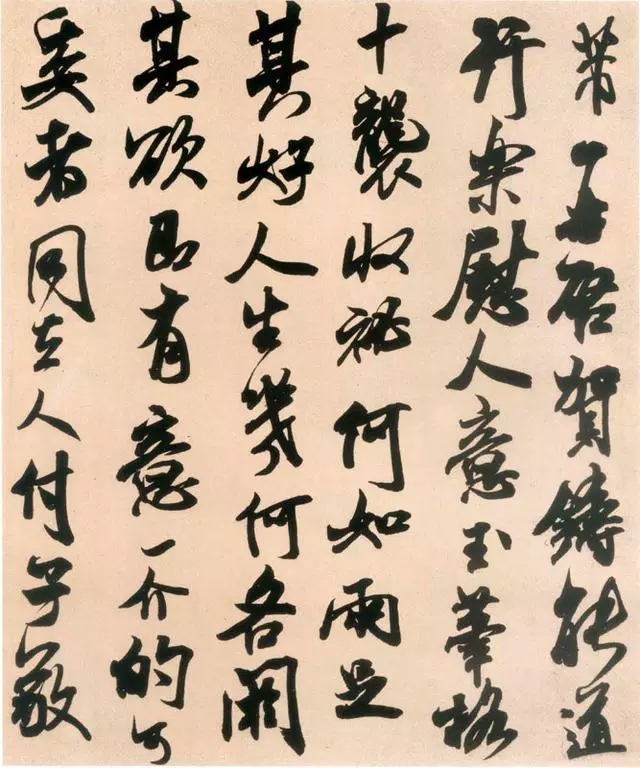 芾再启賀鑄能道
行樂慰人意玉筆格
十襲收祕何如兩足
其好人生幾何各閼
其欲即有意一介的可
委者同去人付子敬